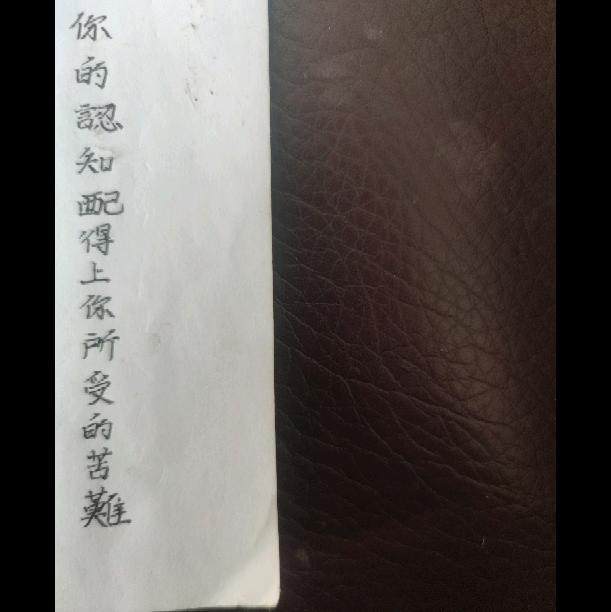 你的認知配得上你所受的苦難